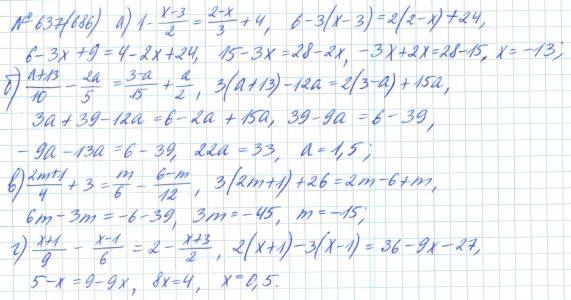 № 637(686) а) 1 - (x-3)/2 = (2-x)/3 + 4, 6-3(x-3)=2(2-x)+24,
6-3x+9=4-2x+24, 15-3x=28-2x, -3x+2x=28-15, x=-13;
б) (a+13)/10 - 2a/5 = (3-a)/15 + a/2, 3(a+13)-12a=2(3-a)+15a,
3a+39-12a=6-2a+15a, 39-9a=6-39,
-9a-13a=6-39, 22a=33, a=1,5;
в) (2m+1)/4 + 3 = m/6 - (6-m)/12, 3(2m+1)+26=2m-6+m,
6m-3m=-6-39, 3m=-45, m=-15;
г) (x+1)/9 - (x-1)/6 = 2 - (x+3)/2, 2(x+1)-3(x-1)=36-9x-27,
5-x=9-9x, 8x=4, x=0,5.